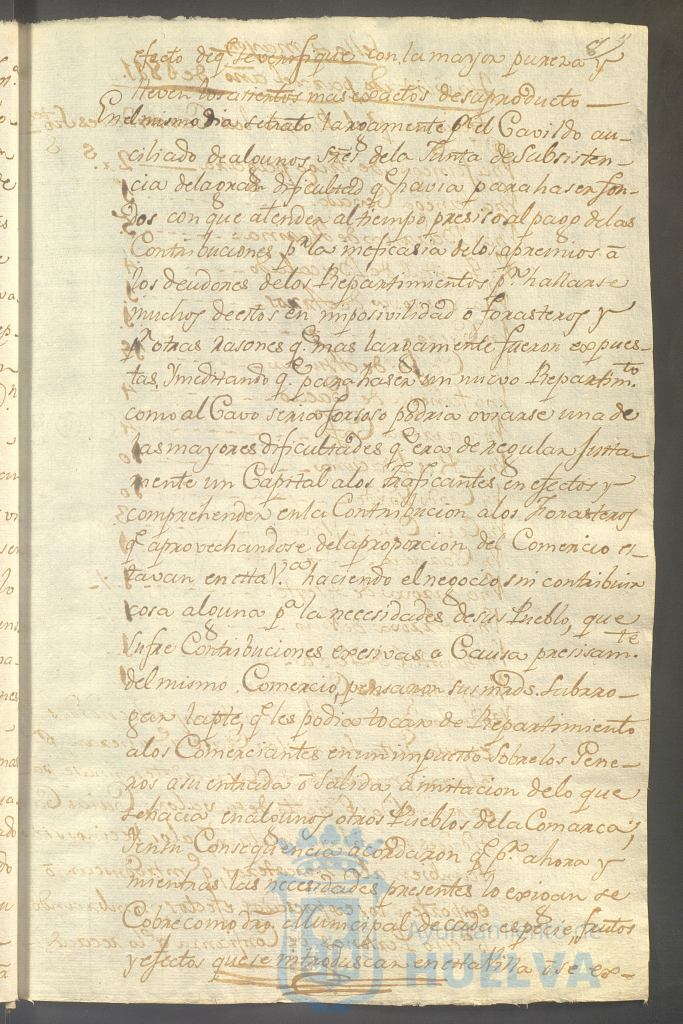 efecto de q.^e se verifique con la mayor pureza y
lleven los asientos mas exactos de su producto
En el mismo dia se trato largamente p.^r el Cavildo au-
ciliado de algunos S.res de la Junta de Subsisten-
cia de la gran dificultad q.^e havia para haser fon-
dos con que atender al tiempo presiso al pago de las
Contribuciones p.^r la ineficasia de los apremios á
los deudores de los Repartimientos p.^r hallarse
muchos de estos en imposivilidad ó forasteros y
p.^r otras rasones q.^e mas largamente fueron expues-
tas, Y meditando q.^e para haser un nuevo Repartim.to
como al Cavo seria forsoso podria oviarse una de
las mayores dificultades q.^e era de regular Justa-
mente un Capital a los traficantes en efectos y
comprehender en la Contribucion a los Forasteros
q.^e aprovechandose de la proporcion del Comercio es-
tavan en esta V.^a haciendo el negocio sin contribuir
cosa alguna p.^a la necesidades de sus Pueblo, que
sufre Contribuciones exesivas a Causa presisam.te
del mismo Comercio, pensaron sus mrds. subrro-
gar la pte. q.^e les podia tocar de Repartimiento
a los Comerciantes en un impuesto sobre los Gene-
ros a su entrada ó salida a imitacion de lo que
se hacia en algunos otros Pueblos de la Comarca;
Y en su Conseq.^a acordaron q.^e p.^r ahora y
mientras las necesidades presentes lo exigan se
Cobre como dro. Municipal de cada especie, frutos
y efectos que se introduscan en esta Villa ó se ex-
Ayuntamiento de
HUELVA